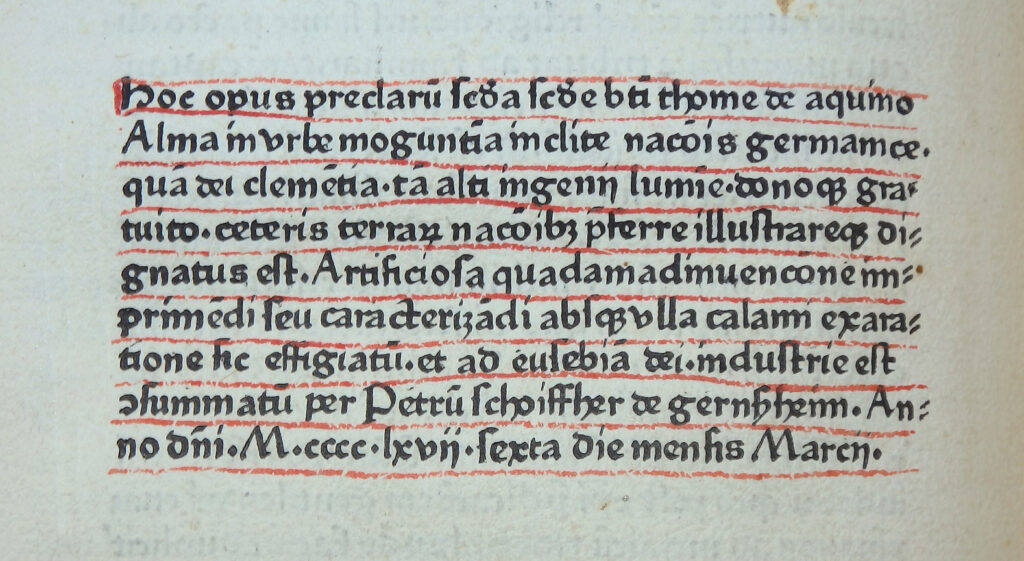 Hoc opus preclarū scd̄a scd̄e bt̄i thome de aquino
Alma in vrbe moguntīa inclite nac̄ois germanice.
quā dei clemēcia·tā alti ingenij lumīe·donoqꝫ gra-
tuito·ceteris terraꝝ nac̄oibꝫ p̄ferre illustrareqꝫ di-
gnatus est. Artificiosa quadam adinuenc̄one im-
primēdi seu caracterizādi absqꝫ vlla calami exara-
tione sic effigiatū. et ad eusebiā dei·industrie est
ↄsummatū per Petrū schoiffher de gernsheim. An-
no dn̄i·M·cccc·lxvij·sexta die mensis Marcij.